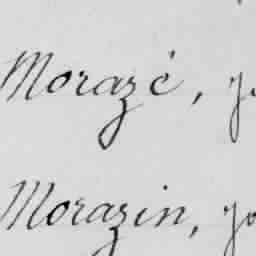 Morazé,
Morazin,